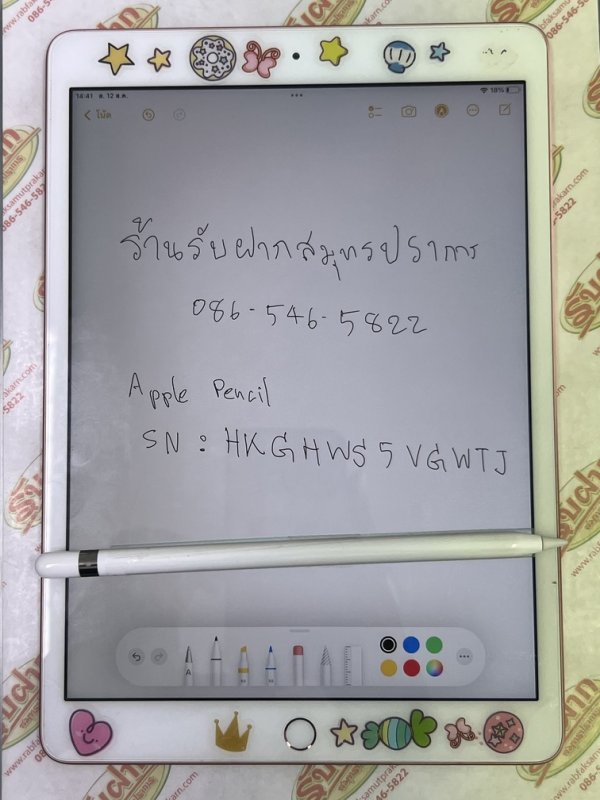 14:41 อ. 12 ส.ค.
18%
โน้ต
ร้านรับฝากสมุทรปราการ
086-546-5822
Apple Pencil
SN : HKGHWS5VGWTJ
A
รับฝาก
www.rabfaksamutprakarn.com
086-546-5822